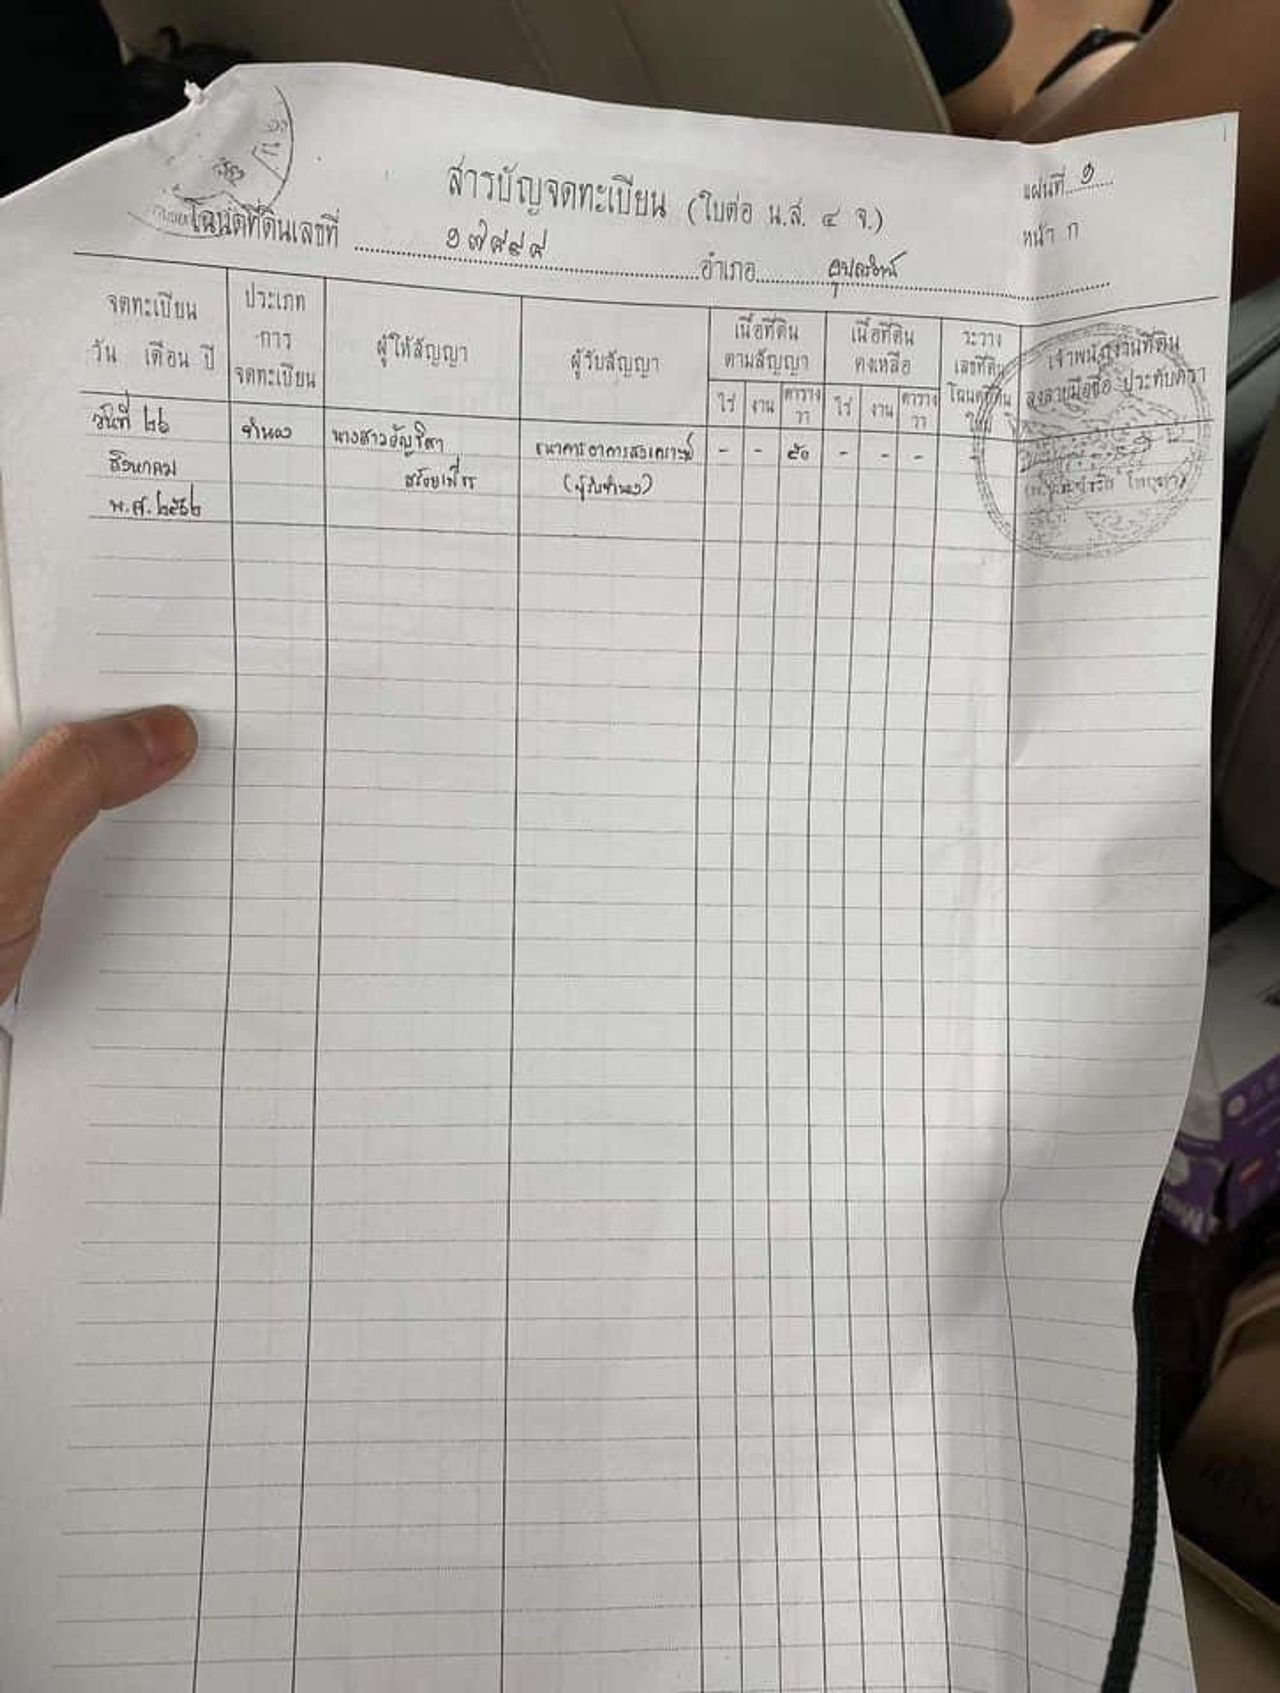 สารบัญจดทะเบียน (ใบต่อ น.ส. ๔ จ.)
แผ่นที่ ๑
หน้า ก
โฉนดที่ดินเลขที่ ๑๗๙๙๙ อำเภอ
จดทะเบียน วัน เดือน ปี
ประเภท การ จดทะเบียน
ผู้ให้สัญญา
ผู้รับสัญญา
เนื้อที่ดิน ตามสัญญา
เนื้อที่ดิน คงเหลือ
ระวาง เลขที่ดิน โฉนดที่ดิน ใหม่
เจ้าพนักงานที่ดิน ลงลายมือชื่อ ประทับตรา
ไร่ งาน ตารางวา ไร่ งาน ตารางวา
วันที่ ๒๖ จำนอง นางสาว ธนาคารอาคารสงเคราะห์ - - ๕๐ - - - -
สิงหาคม สร้อยเพ็ชร (ผู้รับจำนอง)
พ.ศ. ๒๕๖๒